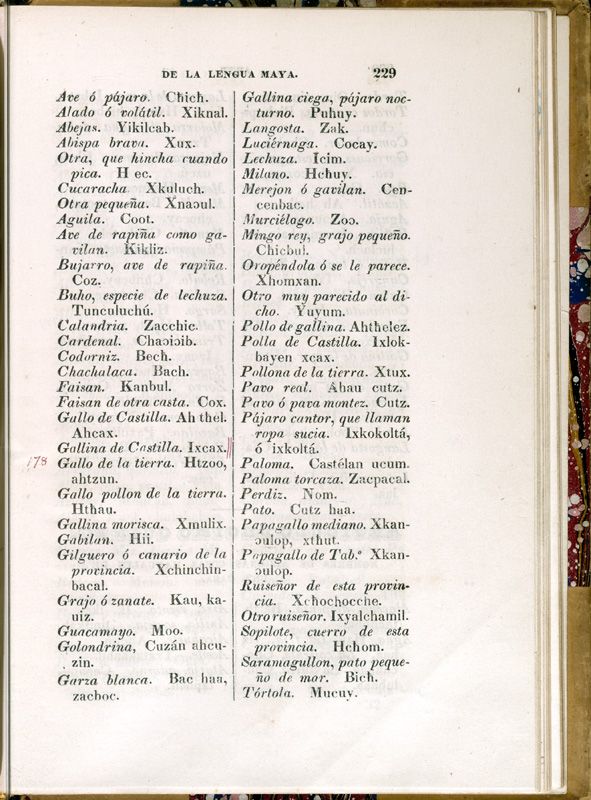 DE LA LENGUA MAYA. 229
Ave ó pájaro. Chich.
Alado ó volátil. Xiknal.
Abejas. Yikilcab.
Abispa brava. Xux.
Otra, que hincha cuando
pica. H ec.
Cucaracha. Xkuluch.
Otra pequeña. Xnaɔul.
Aguila. Coot.
Ave de rapiña como ga-
vilan. Kikliz.
Bujarro, ave de rapiña.
Coz.
Buho, especie de lechuza.
Tunculuchú.
Calandria. Zacchic.
Cardenal. Chaɔiɔib.
Codorniz. Bech.
Chachalaca. Bach.
Faisan. Kanbul.
Faisan de otra casta. Cox.
Gallo de Castilla. Ah thel.
Ahcax.
Gallina de Castilla. Ixcax.
178 Gallo de la tierra. Htzoo,
ahtzun.
Gallo pollon de la tierra.
Hthau.
Gallina morisca. Xmulix.
Gabilan. Hii.
Gilguero ó canario de la
provincia. Xchinchin-
bacal.
Grajo ó zanate. Kau, ka-
uiz.
Guacamayo. Moo.
Golondrina, Cuzán ahcu-
zin.
Garza blanca. Bac haa,
zacboc.
Gallina ciega, pájaro noc-
turno. Puhuy.
Langosta. Zak.
Luciérnaga. Cocay.
Lechuza. Icim.
Milano. Hchuy.
Merejon ó gavilan. Cen-
cenbac.
Murciélogo. Zoɔ.
Mingo rey, grajo pequeño.
Chicbul.
Oropéndola ó se le parece.
Xhomxan.
Otro muy parecido al di-
cho. Yuyum.
Pollo de gallina. Ahthelez.
Polla de Castilla. Ixlok-
bayen xcax.
Pollona de la tierra. Xtux.
Pavo real. Ahau cutz.
Pavo ó pava montez. Cutz.
Pájaro cantor, que llaman
ropa sucia. Ixkokoltá,
ó ixkoltá.
Paloma. Castélan ucum.
Paloma torcaza. Zacpacal.
Perdiz. Nom.
Pato. Cutz haa.
Papagallo mediano. Xkan-
ɔulop, xthut.
Papagallo de Tab.º Xkan-
ɔulop.
Ruiseñor de esta provin-
cia. Xchochocche.
Otro ruiseñor. Ixyalchamil.
Sopilote, cuerco de esta
provincia. Hchom.
Saramagullon, pato peque-
ño de mar. Bich.
Tórtola. Mucuy.